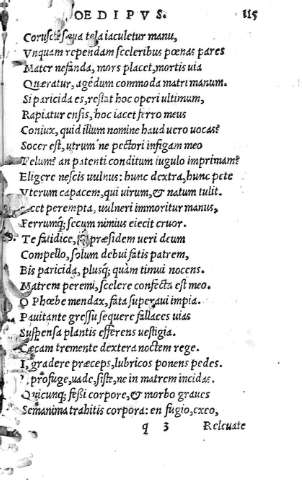 OEDIPVS. 115
Corusce sæua tela iaculetur manu,
Vnquam rependam sceleribus pœnas pares
Mater nefanda, mors placet, mortis uia
Quæratur, agedum commoda matri manum.
Si paricida es, restat hoc operi ultimum,
Rapiatur ensis, hoc iacet ferro meus
Coniux, quid illum nomine haud uero uocas?
Socer est, utrum ne pectori infigam meo
Telum? an patenti conditum iugulo imprimam?
Eligere nescis uulnus: hunc dextra, hunc pete
Vterum capacem, qui uirum, & natum tulit.
Iacet perempta, uulneri immoritur manus,
Ferrumq; secum nimius eiecit cruor.
Te fatidice, præsidem ueri deum
Compello, solum debui fatis patrem,
Bis paricida, plusq; quàm timui nocens.
Matrem peremi, scelere confecta est meo.
O Phœbe mendax, fata superaui impia.
Pauitante gressu sequere fallaces uias
Suspensa plantis efferens uestigia.
Cæcam tremente dextera noctem rege.
I, gradere præceps, lubricos ponens pedes.
profuge, uade, siste, ne in matrem incidas.
Quicunq; fessi corpore, & morbo graues
Semanima trahitis corpora: en fugio, exeo,
q 3 Releuate